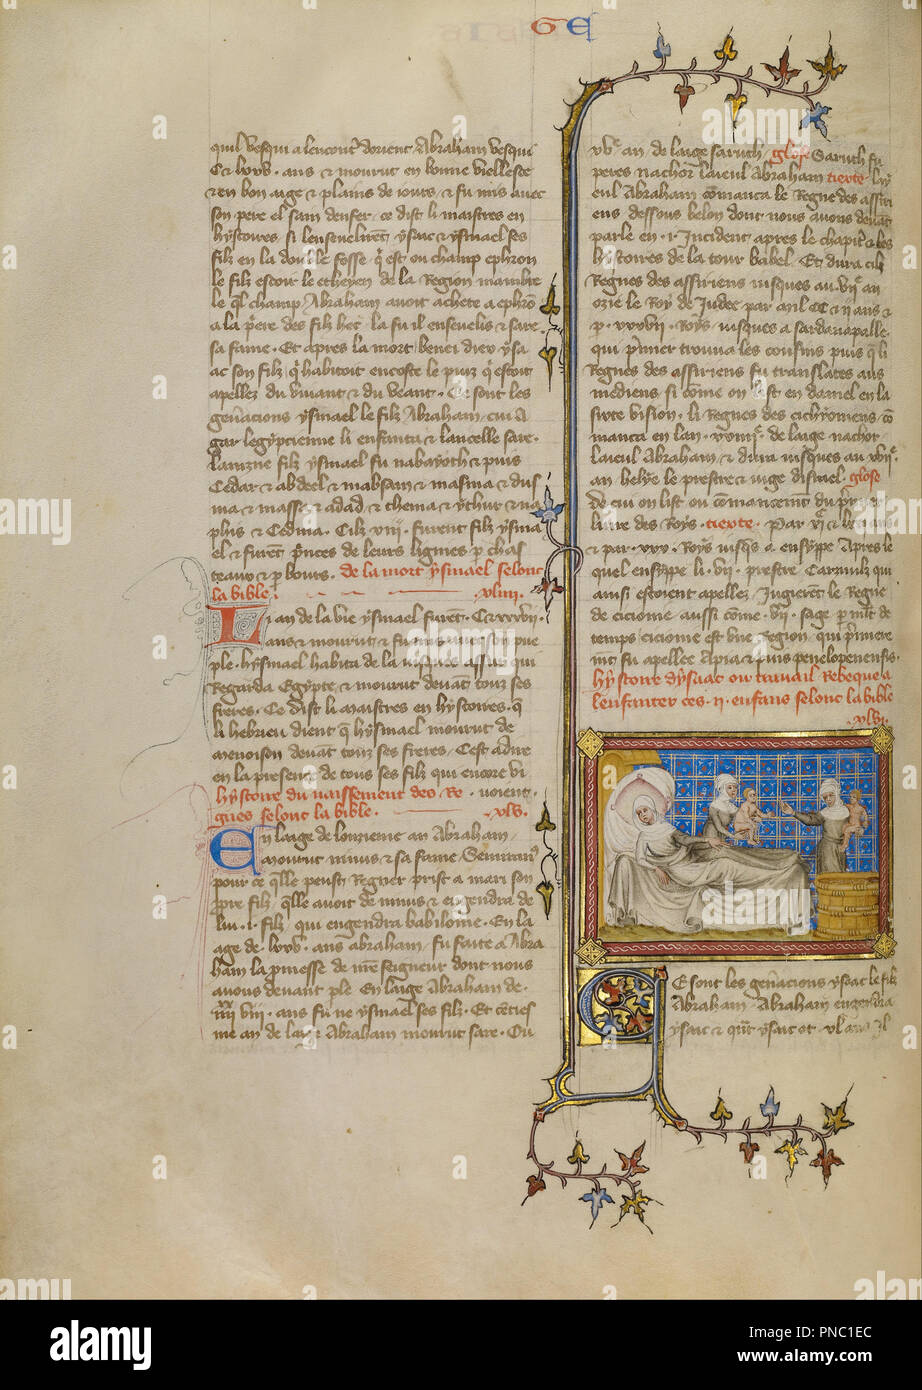 G E
quil vesqui a lencontre dorient Abraham vesqui
C & lxxv. ans & mourut en bonne viellesce
& en bon aige & plains de iours, & fu mis avec
son pere el sain denfer, ce dist li maistres en
hystoires. si lensevelirent ysaac & ysmael ses
filz en la double fosse, q est ou champ ephron
le filz escoir le etheyen de la Region mambre
le ql champ Abraham avoit achete a ephron
a la pere des filz hec. la fu il ensevelis & sare
sa fame. Et apres la mort benei diex ysa
ac son filz q habitoit encoste le puiz q estoit
apellez du vivant & du veant. Ce sont les
generacions ysmael le filz Abraham, cui a
gar legypcienne li enfanta & lancelle sare.
lainzne filz ysmael fu nabayoth & puis
Cedar & abdeel & mabsam & masma & dus
ma & masse & adad & thema & ythur & na
phis & Cedma. Cilz xii furent filz ysma
el & furent princes de leurs lignies p chas
teaux & p bours. de la mort ysmael selonc
la bible. xliiii.
Li an de la vie ysmael furent. C & xxxvii.
ans & mourut & fu mis avec son pue
ple. hysmael habita de la ... assur qui
Regarda Egypte & mourut devant touz ses
freres. Ce dist li maistres en hystoires. q
li hebrieu dient q hysmael mourut de
menoison devant touz ses freres. Cest adire
en la presence de tous ses filz qui encore vi
hystoire du naissement des Re voient.
gnes selonc la bible. xlv.
En laige de lonzieme an Abraham
mourut ninus & sa fame Semiramis
pour ce qlle peust Regner prist a mari son
ppre filz, qlle avoit de ninus & engendra de
lui .i. filz qui engendra babiloine. En la
age de lxxv. ans abraham, fu faite a Abra
ham la pmesse de nre seigneur dont nous
avons devant ple En laige Abraham de
iiii xx viii. ans fu ne ysmael ses filz. Et
an de laige Abraham mourut sare. Ou
xve an de laige saruth. glose Saruth fu
peres nachor laieul Abraham tiexte lay
eul Abraham comanca le Regne des assiri
ens dessous belon dont nous avons devant
parle en .i. Incident apres le chapitre & les
hystoires de la tour babel. Et dura cilz
Regnes des assiriens iusques au vii an
ozie le Roy de Judee par mil CC & ii ans &
p. xxxvii. Roys iusques a sardanapalle.
qui primer trouva les coussins puis q li
Regnes des assiriens fu translates aus
mediens si come on list en daniel en la
siste vision. li Regnes des cichyoniens, co
manca en lan de laige nachor
laieul Abraham & dura iusques au
an helye le prestre & iuge disrael. glose
de cui on list ou comancement du primer
livre des Roys. tiexte. Par & ans
& par .xxx. Roys iusqs a ensyppe Apres le
quel ensyppe li .vii. prestre Carmilz qui
ainsi estoient apellez, Jugierent le Regne
de ciciome aussi come .vii. sage p mlt de
temps ciciome est une Region, qui primere
ment fu apellee Apia & puis penelopenensis.
hystoire dysaac ou travail Rebeque a
lenfanter ces .ii. enfans selonc la bible
xlvi.
Ce sont les generacions ysaac le filz
Abraham. Abraham engendra
ysaac & quant ysaac ot xl ans il